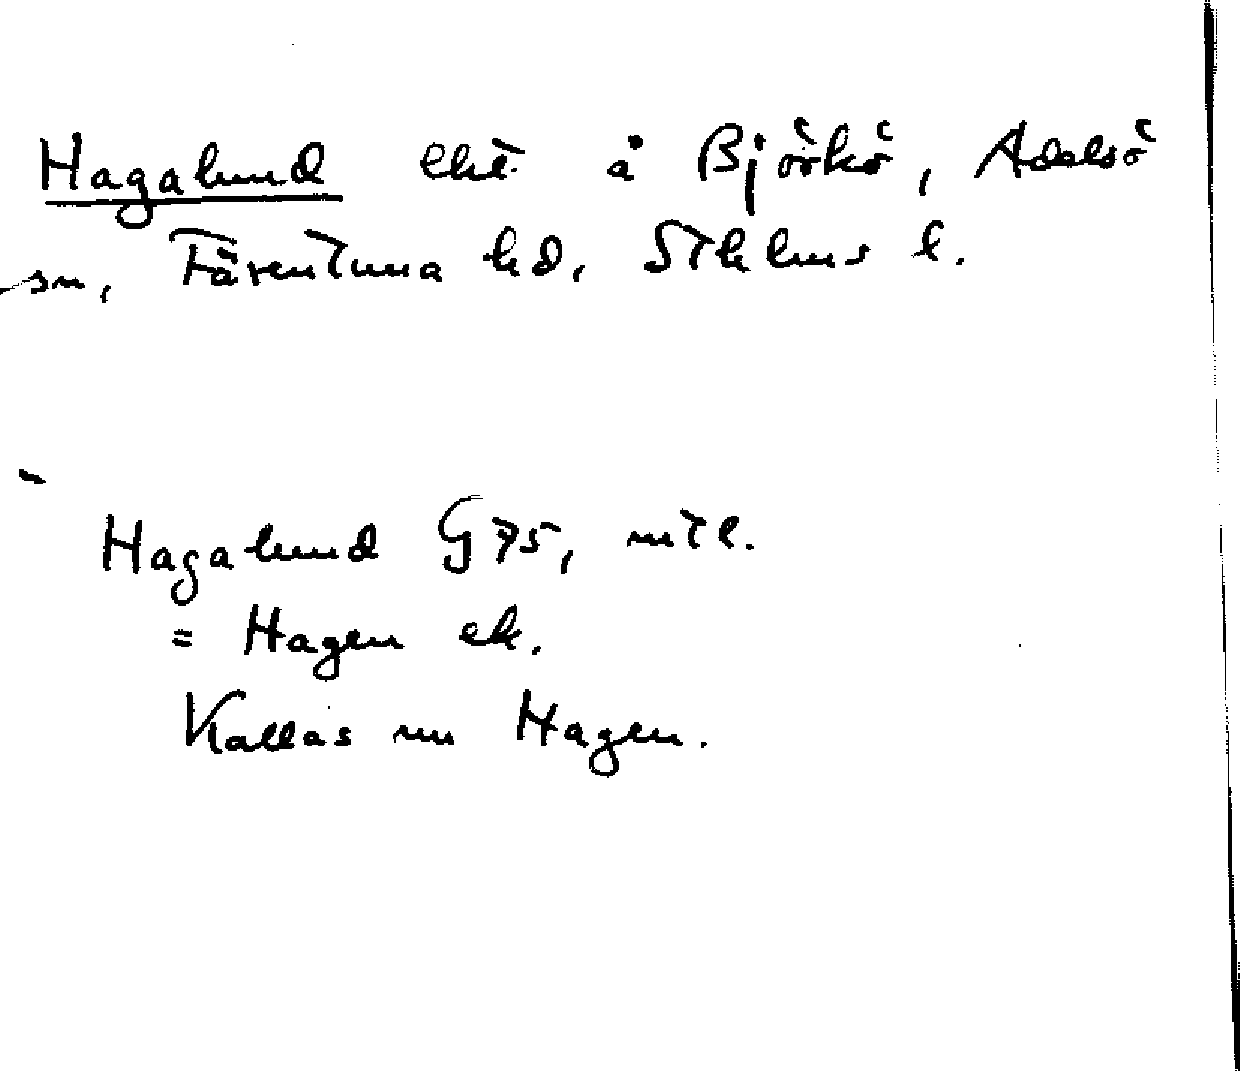 Hagalund lht å Björkö, Adelsö
sn, Färentuna hd, Sthlms l.
Hagalund G 75, mtl.
= Hagen ek.
Kallas nu Hagen.